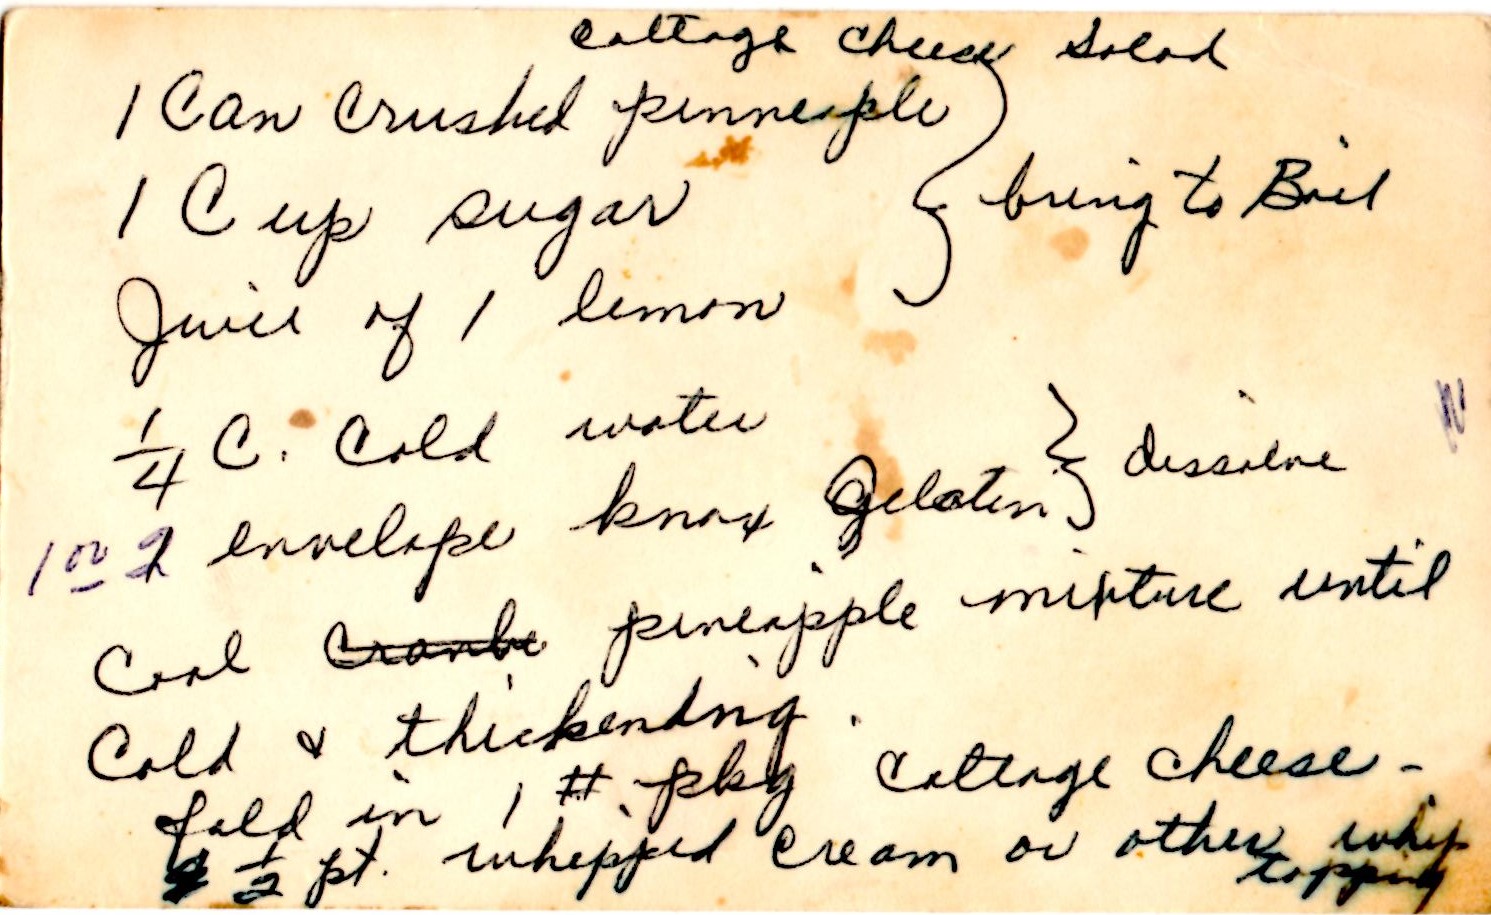 Cottage Cheese Salad
1 Can Crushed pinneaple
1 Cup sugar } bring to Boil
Juice of 1 lemon
1/4 C. Cold water
1 or 2 envelope knox Gelatin } dissolve
Cool Cranbe pineapple mixture until
Cold & thickending.
fold in 1 # pkg Cottage Cheese -
1/2 pt. whipped Cream or other whip
topping